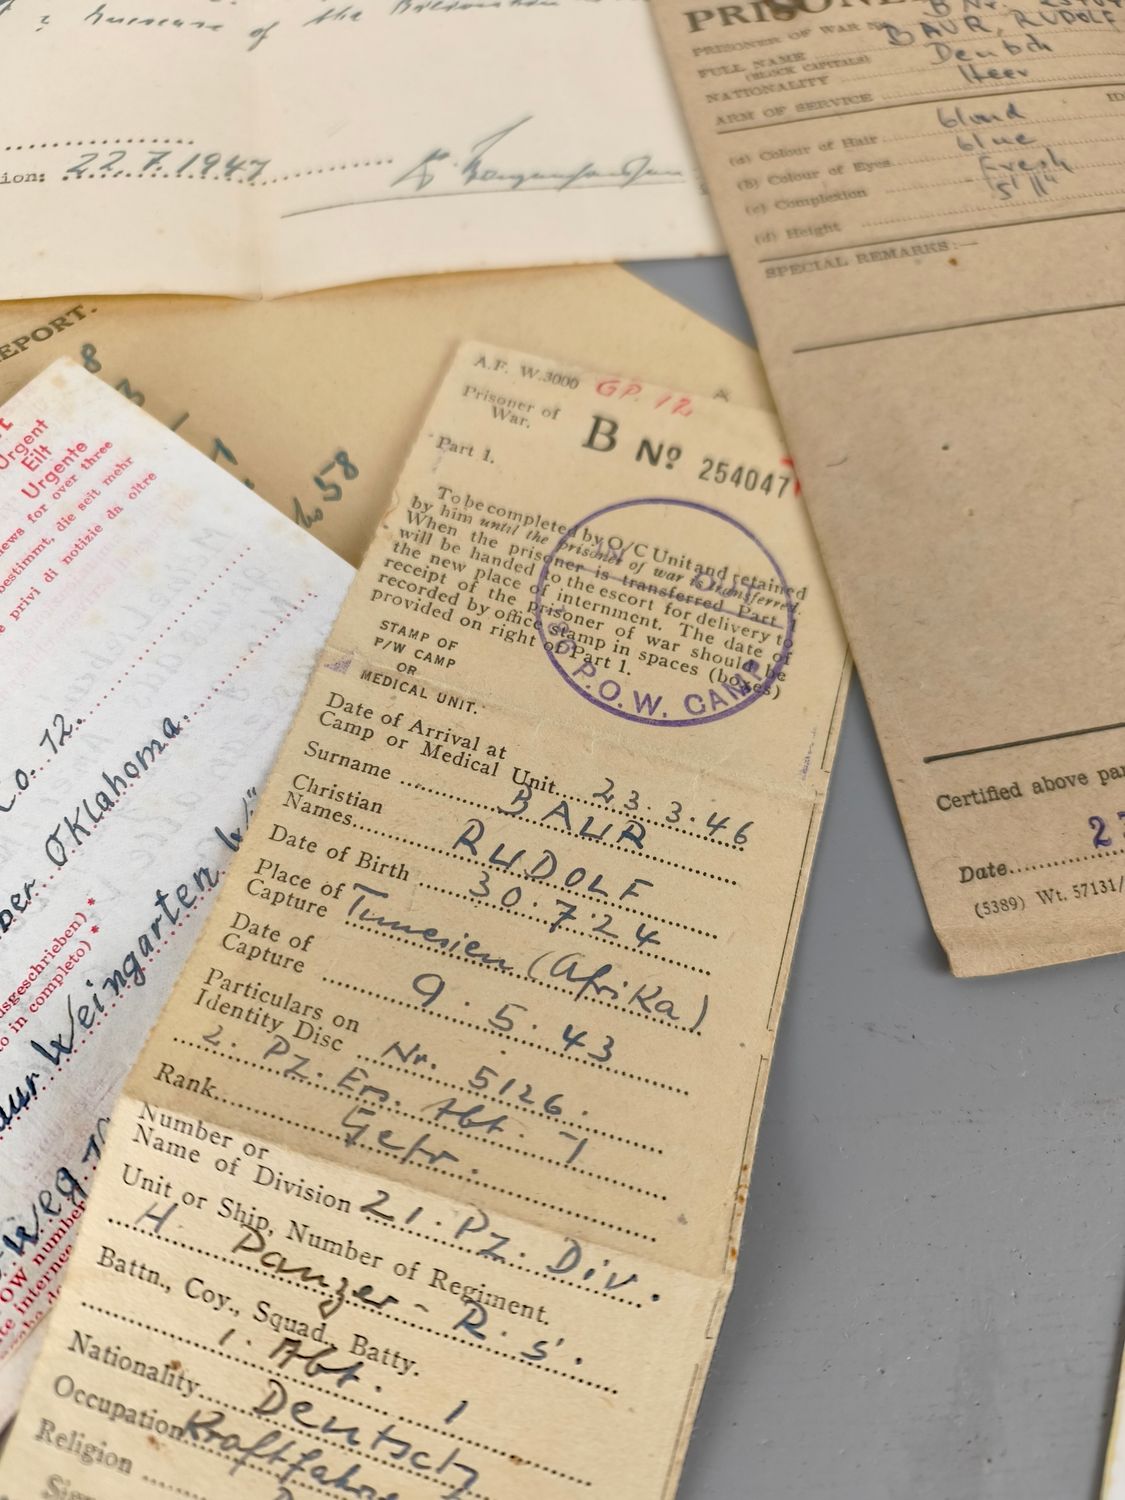 of the
ion: 22.7.1947
PRISONE
PRISONER OF WAR No. B Nr.
FULL NAME BAUR, RUDOLF
(BLOCK CAPITALS)
NATIONALITY Deutsch
ARM OF SERVICE Heer
(a) Colour of Hair blond
(b) Colour of Eyes blue
(c) Complexion Fresh
(d) Height 5' 11"
SPECIAL REMARKS:—
Certified above par
Date 2
(5389) Wt. 57131/
EPORT.
8
58
Urgent
Eilt
Urgente
news for over three
bestimmt, die seit mehr
e privi di notizie da oltre
Co. 12.
ber Oklahoma.
usgeschrieben) *
to in completo) *
aur Weingarten
weg
OW number
te interne
A.F. W.3000 GP. 12
Prisoner of
War.
B No 254047
Part 1.
To be completed by O/C Unit and retained
by him until the prisoner of war is transferred.
When the prisoner is transferred Part 1
will be handed to the escort for delivery to
the new place of internment. The date of
receipt of the prisoner of war should be
recorded by office stamp in spaces (boxes)
provided on right of Part 1.
STAMP OF
P/W CAMP
OR
MEDICAL UNIT.
P.O.W. CAMP
Date of Arrival at
Camp or Medical Unit 23.3.46
Surname BAUR
Christian
Names RUDOLF
Date of Birth 30.7.24
Place of
Capture Tunesien (Afrika)
Date of
Capture 9.5.43
Particulars on
Identity Disc Nr. 5126.
2. Pz. Ers. Abt. 7
Rank Gefr.
Number or
Name of Division 21. Pz. Div.
Unit or Ship, Number of Regiment.
H. Panzer-R. 5.
Battn., Coy., Squad., Batty.
1. Abt. 1
Nationality Deutsch
Occupation Kraftfahr
Religion